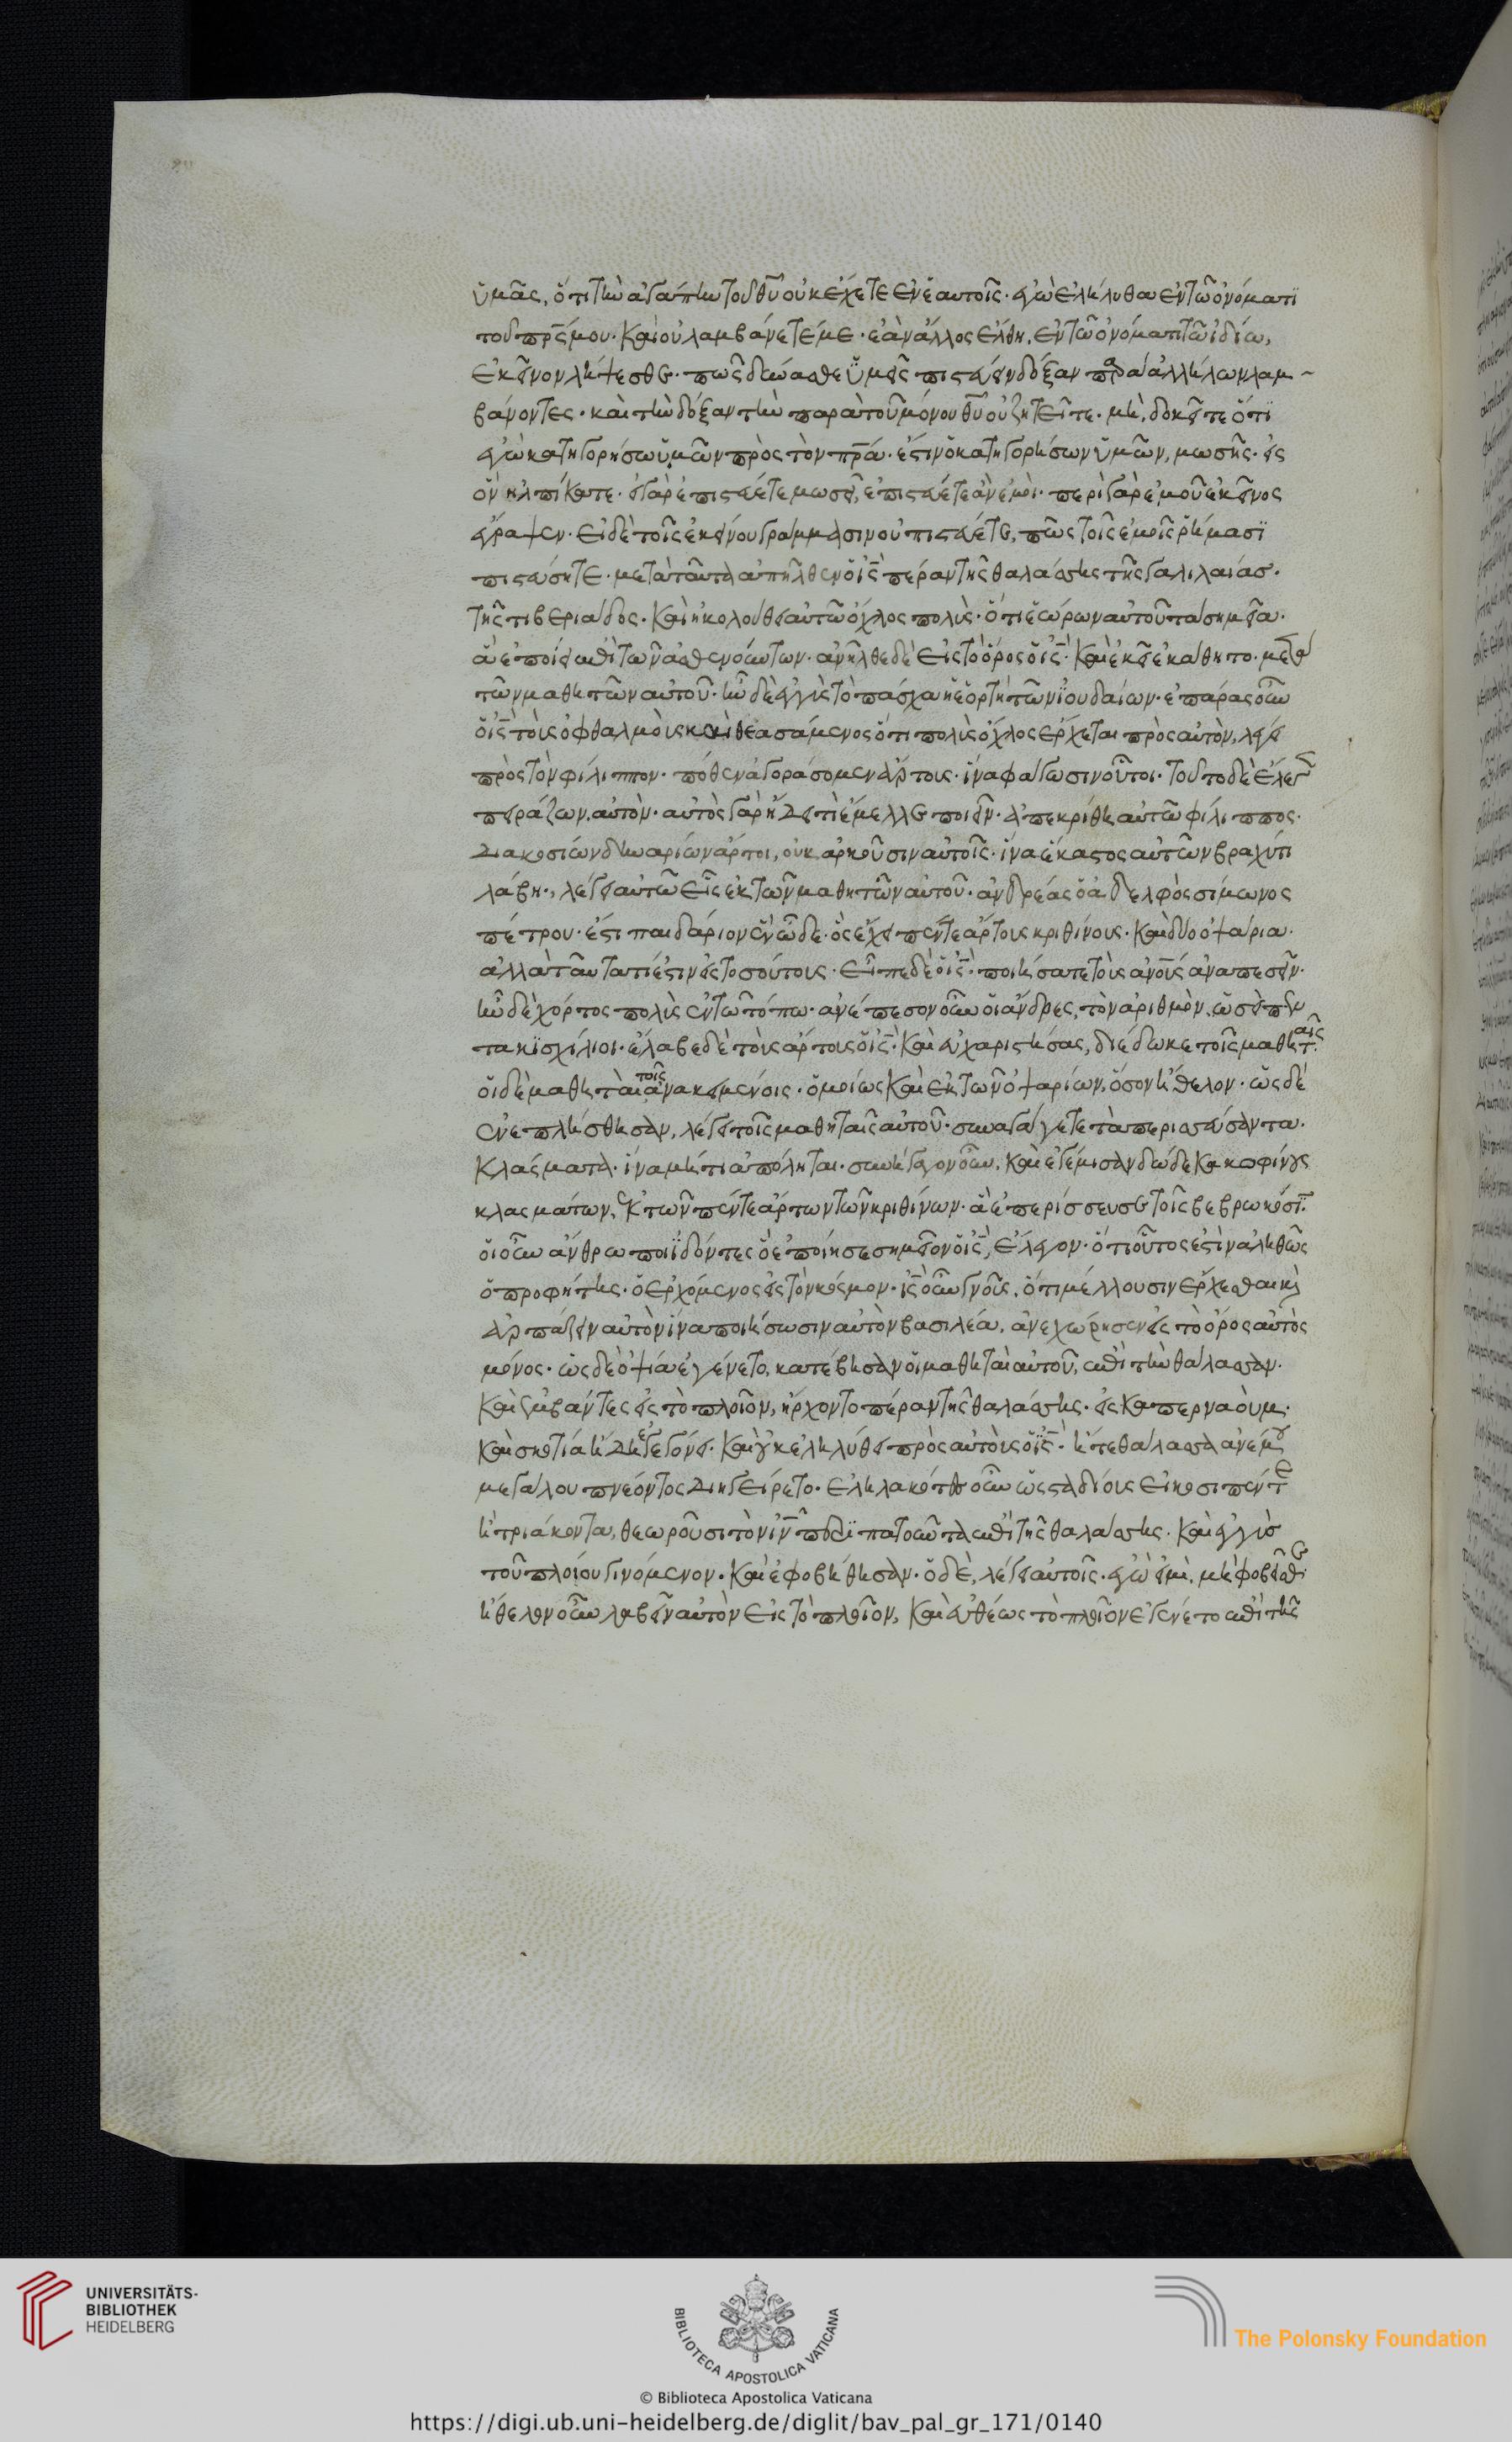 ὑμᾶς, ὅτι τὴν ἀγάπην τοῦ θυ οὐκ ἔχετε ἐν ἑαυτοῖς· ἐγὼ ἐλήλυθα ἐν τῶ ὀνόματι
τοῦ πρς μου· καὶ οὐ λαμβάνετέ με· ἐὰν ἄλλος ἔλθη, ἐν τῶ ὀνόματι τῶ ἰδίω,
ἐκεῖνον λήψεσθε· πῶς δύνασθε ὑμεῖς πιστεύειν δόξαν παρα ἀλλήλων λαμ-
βάνοντες· καὶ τὴν δόξαν τὴν παρὰ τοῦ μόνου θυ οὐ ζητεῖτε· μὴ, δοκεῖτε ὅτι
ἐγὼ κατηγορήσω ὑμῶν πρὸς τὸν πρα· ἔστιν ὁ κατηγορήσων ὑμῶν, μωσῆς· εἰς
ὃν ἠλπίκατε· εἰ γὰρ ἐπιστεύετε μωσεῖ, ἐπιστεύετε ἂν ἐμοί· περὶ γὰρ ἐμοῦ ἐκεῖνος
ἔγραψεν· εἰ δὲ τοῖς ἐκείνου γράμμασιν οὐ πιστεύετε, πῶς τοῖς ἐμοῖς ῥήμασι
πιστεύσητε· μετὰ ταῦτα ἀπῆλθεν ὁ ις πέραν τῆς θαλάσσης τῆς γαλιλαίας·
τῆς τιβεριάδος· καὶ ἠκολούθει αὐτῶ ὄχλος πολὺς· ὅτι ἑώρων αὐτοῦ τὰ σημεῖα·
ἃ ἐποίει ἐπὶ τῶν ἀσθενούντων· ἀνῆλθε δὲ εἰς τὸ ὄρος ὁ ις· καὶ ἐκεῖ ἐκάθητο· μετὰ
τῶν μαθητῶν αὐτοῦ· ἦν δὲ ἐγγὺς τὸ πάσχα ἡ ἑορτὴ τῶν ἰουδαίων· ἐπάρας οὖν
ὁ ις τοὺς ὀφθαλμοὺς καὶ θεασάμενος ὅτι πολὺς ὄχλος ἔρχεται πρὸς αὐτὸν, λέγει
πρὸς τὸν φίλιππον· πόθεν ἀγοράσομεν ἄρτους· ἵνα φάγωσιν οὗτοι· τοῦτο δὲ ἔλεγε
πειράζων αὐτὸν· αὐτὸς γὰρ ἤδει τί ἔμελλε ποιεῖν· ἀπεκρίθη αὐτῶ φίλιππος·
διακοσίων δηναρίων ἄρτοι, οὐκ ἀρκοῦσιν αὐτοῖς· ἵνα ἕκαστος αὐτῶν βραχύ τι
λάβη· λέγει αὐτῶ εἷς ἐκ τῶν μαθητῶν αὐτοῦ· ἀνδρέας ὁ ἀδελφὸς σίμωνος
πέτρου· ἔστι παιδάριον ἓν ὧδε· ὃς ἔχει πέντε ἄρτους κριθίνους· καὶ δύο ὀψάρια·
ἀλλὰ ταῦτα τί ἐστιν εἰς τοσούτους· εἶπε δὲ ὁ ις· ποιήσατε τοὺς ανους ἀναπεσεῖν·
ἦν δὲ χόρτος πολὺς ἐν τῶ τόπω· ἀνέπεσον οὖν οἱ ἄνδρες, τὸν ἀριθμὸν, ὡσεὶ πεν
τακισχίλιοι· ἔλαβε δὲ τοὺς ἄρτους ὁ ις· καὶ εὐχαριστήσας, διέδωκε τοῖς μαθηταῖς·
οἱ δὲ μαθηταὶ τοῖς ἀνακειμένοις· ὁμοίως καὶ ἐκ τῶν ὀψαρίων, ὅσον ἤθελον· ὡς δὲ
ἐνεπλήσθησαν, λέγει τοῖς μαθηταῖς αὐτοῦ· συναγάγετε τὰ περισσεύσαντα·
κλάσματα· ἵνα μή τι ἀπόληται· συνήγαγον οὖν, καὶ ἐγέμισαν δώδεκα κοφίνους
κλασμάτων, ἐκ τῶν πέντε ἄρτων τῶν κριθίνων· ἃ ἐπερίσσευσε τοῖς βεβρωκόσι·
οἱ οὖν ἄνθρωποι ἰδόντες ὃ ἐποίησε σημεῖον ὁ ις, ἔλεγον· ὅτι οὗτός ἐστιν ἀληθῶς
ὁ προφήτης· ὁ ἐρχόμενος εἰς τὸν κόσμον· ις οὖν γνοὺς, ὅτι μέλλουσιν ἔρχεσθαι καὶ
ἁρπάζειν αὐτὸν ἵνα ποιήσωσιν αὐτὸν βασιλέα, ἀνεχώρησεν εἰς τὸ ὄρος αὐτὸς
μόνος· ὡς δὲ ὀψία ἐγένετο, κατέβησαν οἱ μαθηταὶ αὐτοῦ, ἐπὶ τὴν θάλασσαν·
καὶ ἐμβάντες εἰς τὸ πλοῖον, ἤρχοντο πέραν τῆς θαλάσσης· εἰς καπερναούμ·
καὶ σκοτία ἤδη ἐγεγόνει· καὶ οὐκ ἐληλύθει πρὸς αὐτοὺς ὁ ις· ἥ τε θάλασσα ἀνέμου
μεγάλου πνέοντος διηγείρετο· ἐληλακότες οὖν ὡς σταδίους εἴκοσι πέντε
ἢ τριάκοντα, θεωροῦσι τὸν ιν περιπατοῦντα ἐπὶ τῆς θαλάσσης· καὶ ἐγγὺς
τοῦ πλοίου γινόμενον· καὶ ἐφοβήθησαν· ὁ δὲ, λέγει αὐτοῖς· ἐγώ εἰμι, μὴ φοβεῖσθε·
ἤθελον οὖν λαβεῖν αὐτὸν εἰς τὸ πλοῖον, καὶ εὐθέως τὸ πλοῖον ἐγένετο ἐπὶ τῆς
UNIVERSITÄTS-
BIBLIOTHEK
HEIDELBERG
BIBLIOTECA APOSTOLICA VATICANA
The Polonsky Foundation
© Biblioteca Apostolica Vaticana
https://digi.ub.uni-heidelberg.de/diglit/bav_pal_gr_171/0140